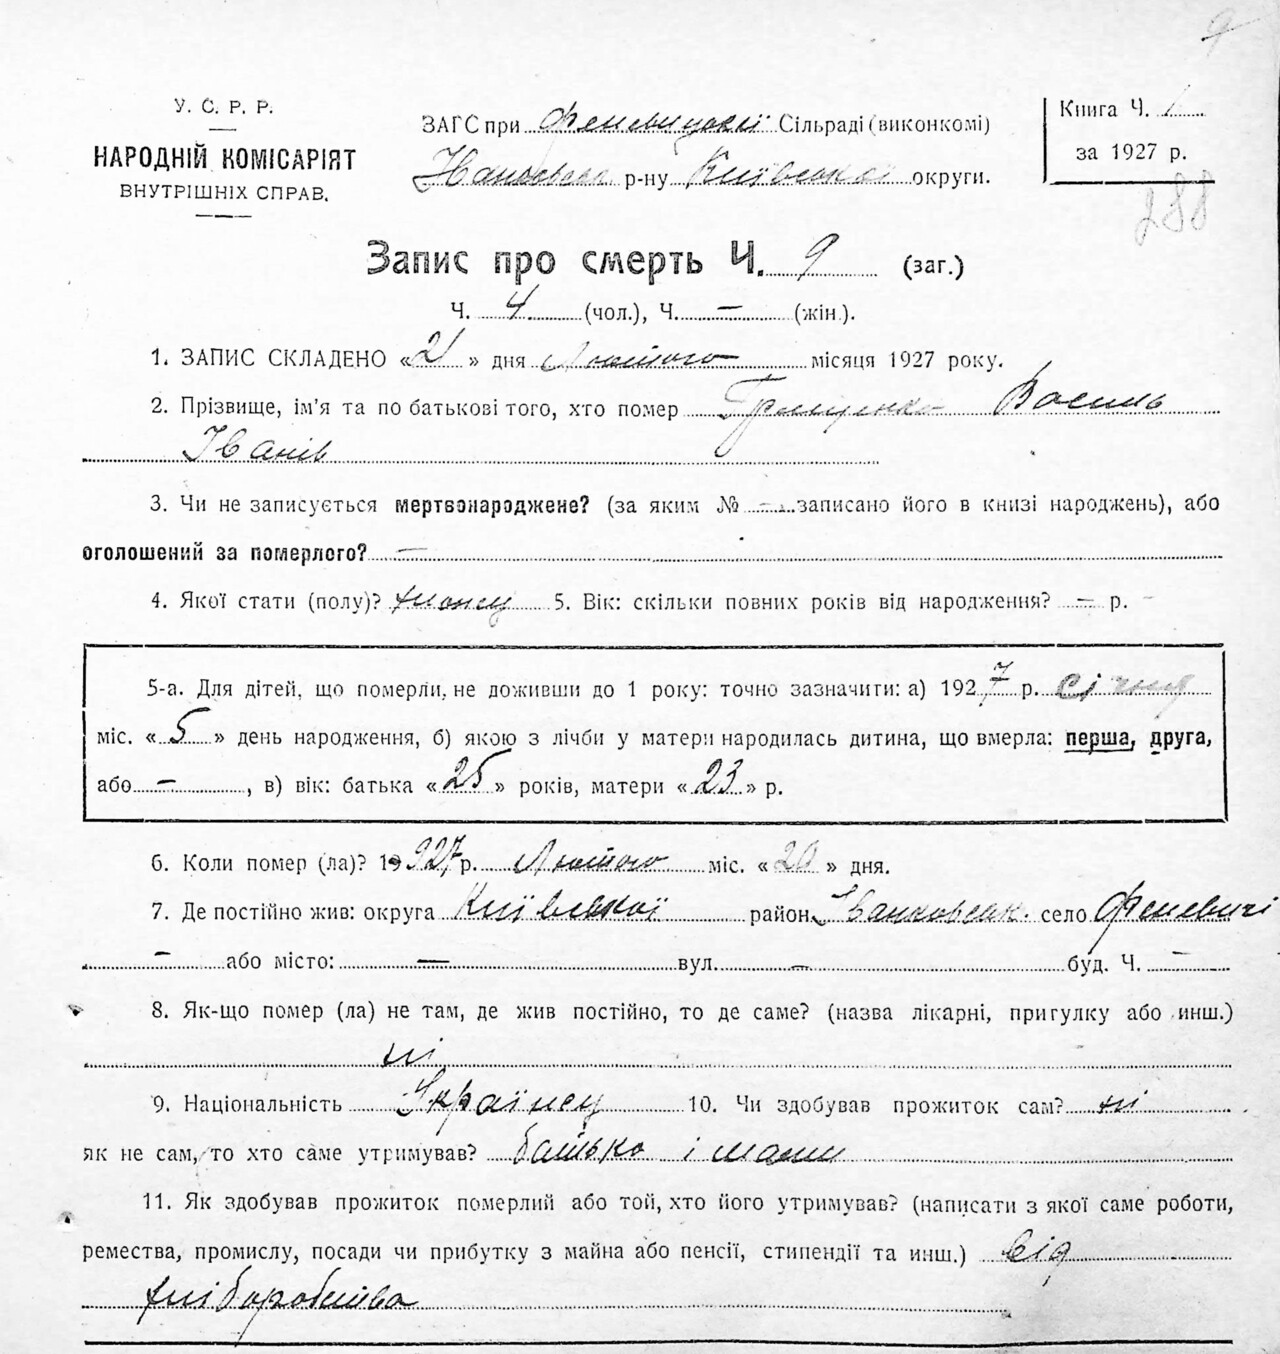 9
У. С. Р. Р.
НАРОДНІЙ КОМІСАРІЯТ
ВНУТРІШНІХ СПРАВ.
ЗАГС при Феневицької Сільраді (виконкомі)
р-ну Київської округи.
Книга Ч. 1
за 1927 р.
288
Запис про смерть Ч. 9 (заг.)
Ч. 4 (чол.), Ч. – (жін.).
1. ЗАПИС СКЛАДЕНО «21» дня Лютого місяця 1927 року.
2. Прізвище, ім'я та по батькові того, хто помер Грищенко Василь
Іванів
3. Чи не записується мертвонароджене? (за яким № – записано його в книзі народжень), або
оголошений за померлого? –
4. Якої стати (полу)? 5. Вік: скільки повних років від народження? – р. –
5-а. Для дітей, що померли, не доживши до 1 року: точно зазначити: а) 1927 р. січня
міс. «5» день народження, б) якою з лічби у матери народилась дитина, що вмерла: перша, друга,
або –, в) вік: батька «25» років, матери «23» р.
6. Коли помер (ла)? 1927 р. Лютого міс. «20» дня.
7. Де постійно жив: округа Київської район Іванковськ. село Феневичі
– або місто: – вул. – буд. Ч. –
8. Як-що помер (ла) не там, де жив постійно, то де саме? (назва лікарні, пригулку або инш.)
ні
9. Національність Українец 10. Чи здобував прожиток сам? ні
як не сам, то хто саме утримував? батько і мати
11. Як здобував прожиток померлий або той, хто його утримував? (написати з якої саме роботи,
ремества, промислу, посади чи прибутку з майна або пенсії, стипендії та инш.) від
хліборобства